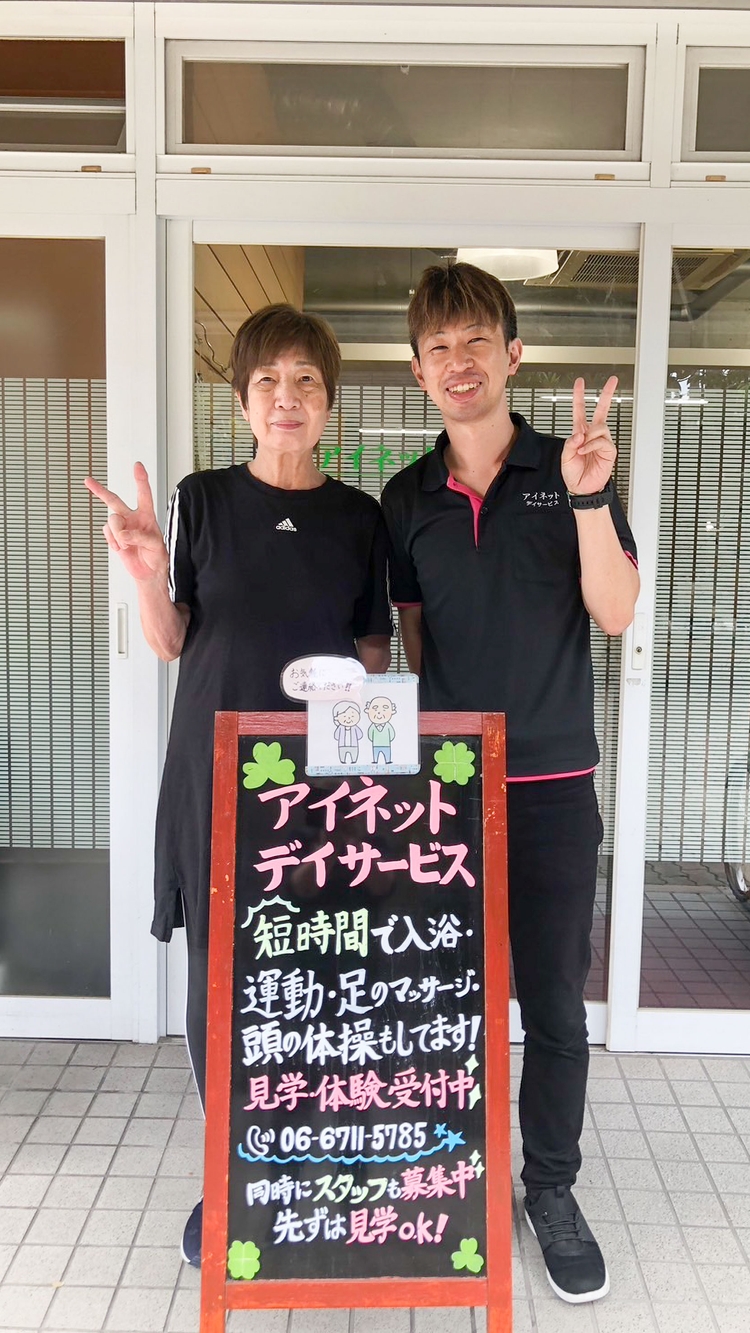 アイネット
アイネット
デイサービス
adidas
お気軽
ご連絡ください!!
アイネット
デイサービス
短時間で入浴・
運動・足のマッサージ・
頭の体操もしてます!
見学・体験・受付中
06-6711-5785
同時にスタッフも募集中
先ずは見学o.k!